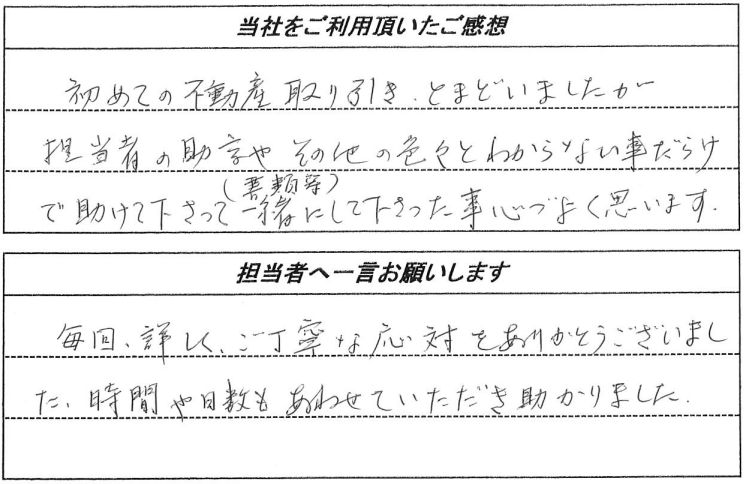 当社をご利用頂いたご感想
初めての不動産取り引き、とまどいましたが
担当者の助言やその他の色々とわからない事だらけ
(書類等)
で助けて下さって一緒にして下さった事心づよく思います.
担当者へ一言お願いします
毎回、詳しく、ご丁寧な応対をありがとうございまし
た、時間や日数もあわせていただき助かりました.